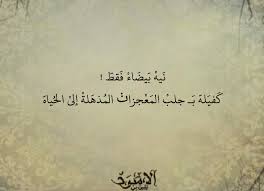 نَيةُ بَيضَاءُ فَقطْ !
كَفيَلة بَـ جلبْ المَعْجزاتْ المُذهَلةْ إلىْ الحَياة